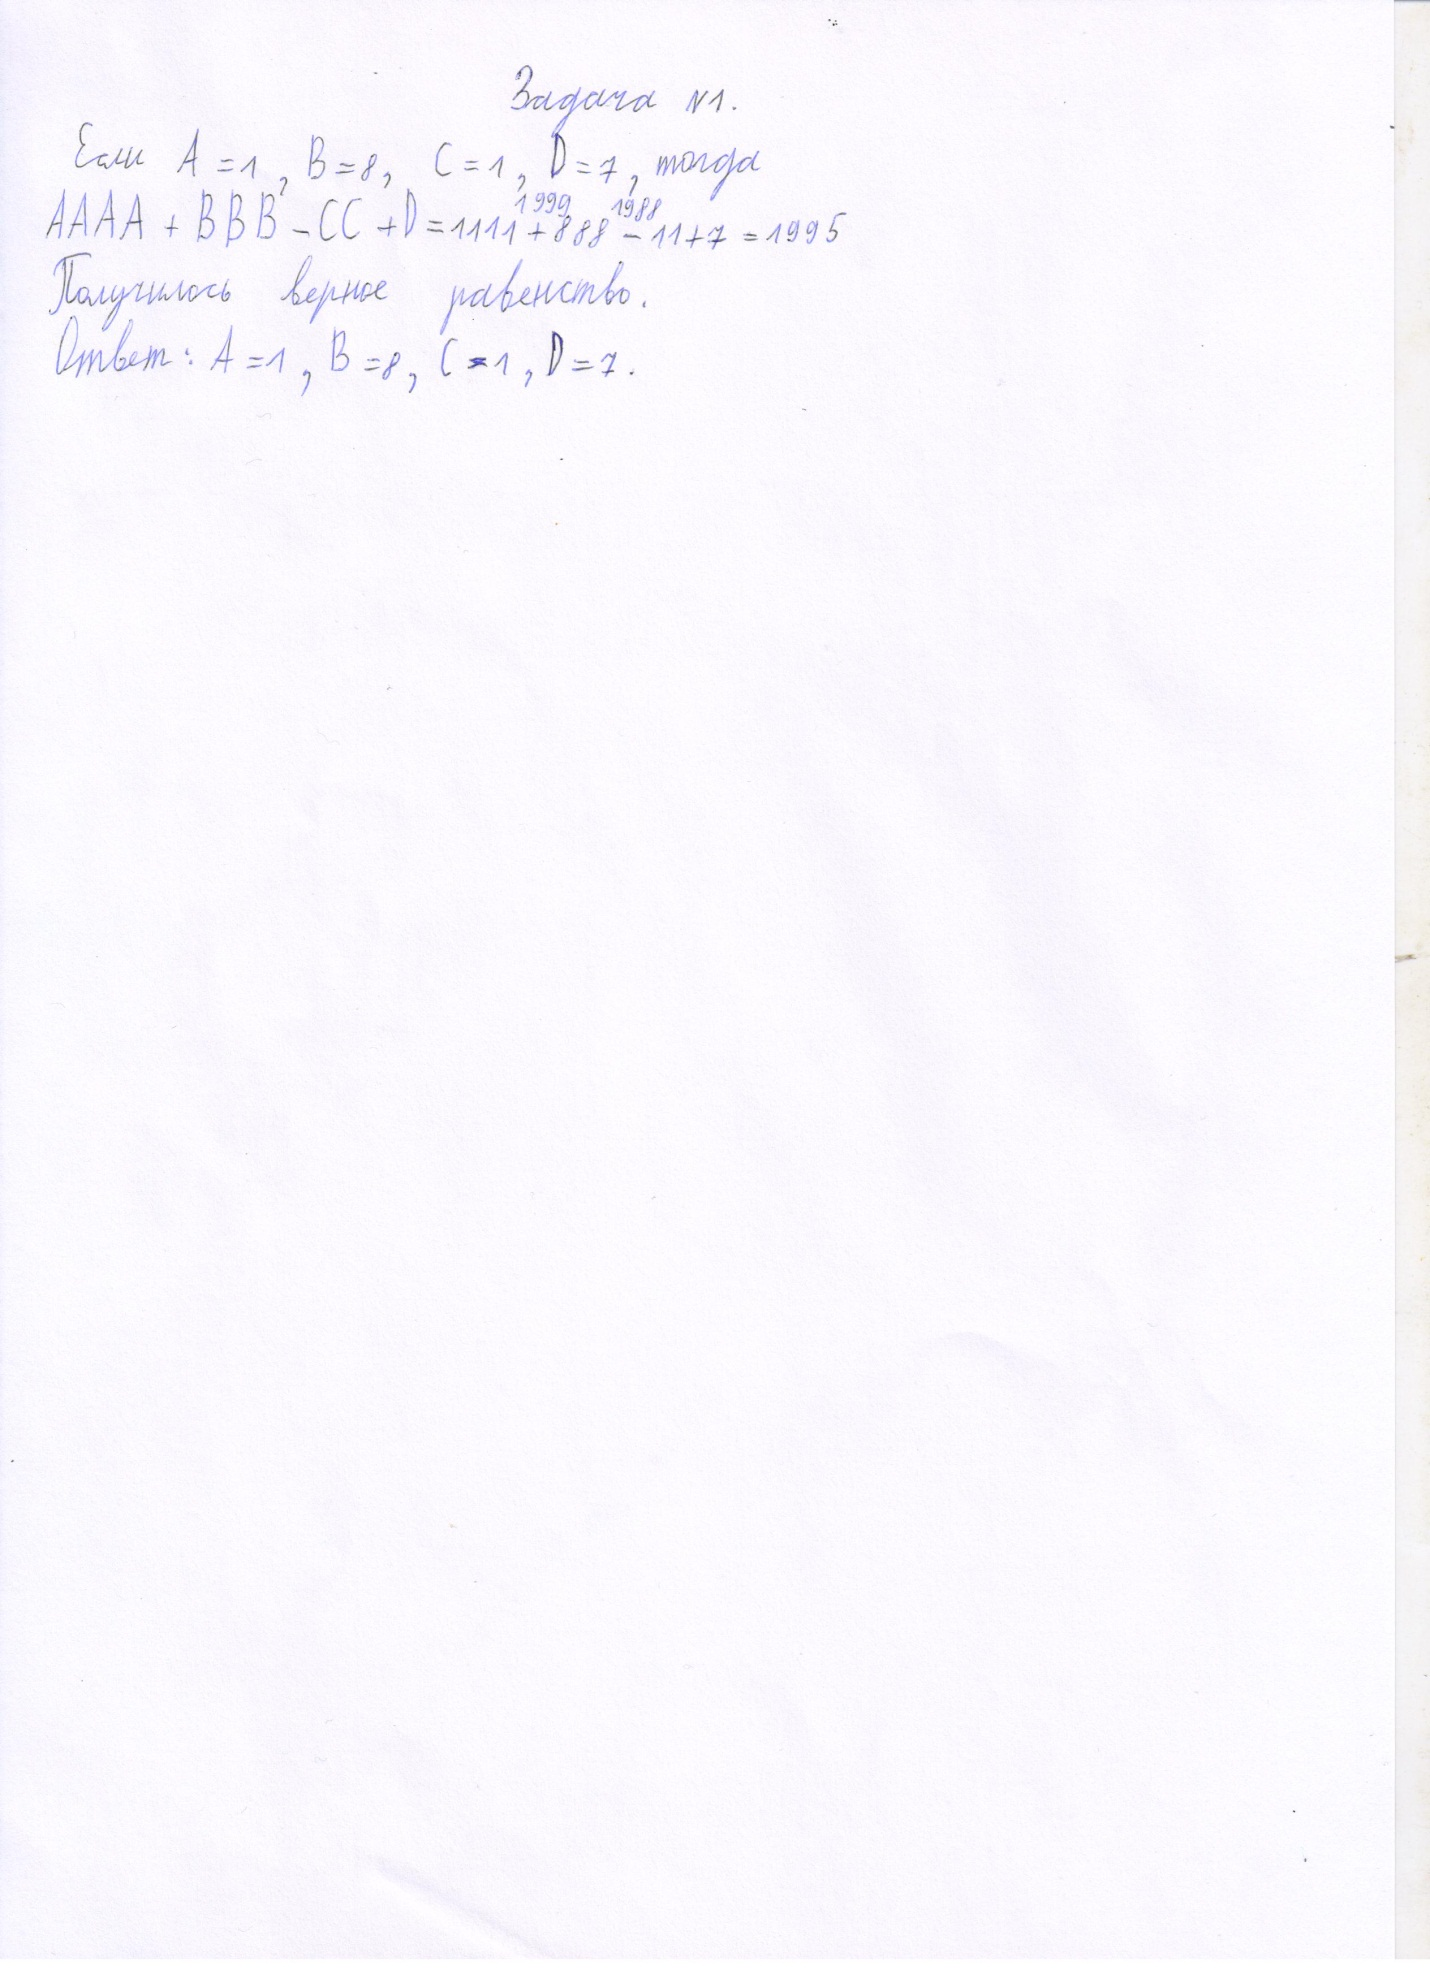 Задача №1.
Если A = 1, B = 8, C = 1, D = 7, тогда
1999 1988
AAAA + BBB - CC + D = 1111 + 888 - 11 + 7 = 1995
Получилось верное равенство.
Ответ: A = 1, B = 8, C = 1, D = 7.